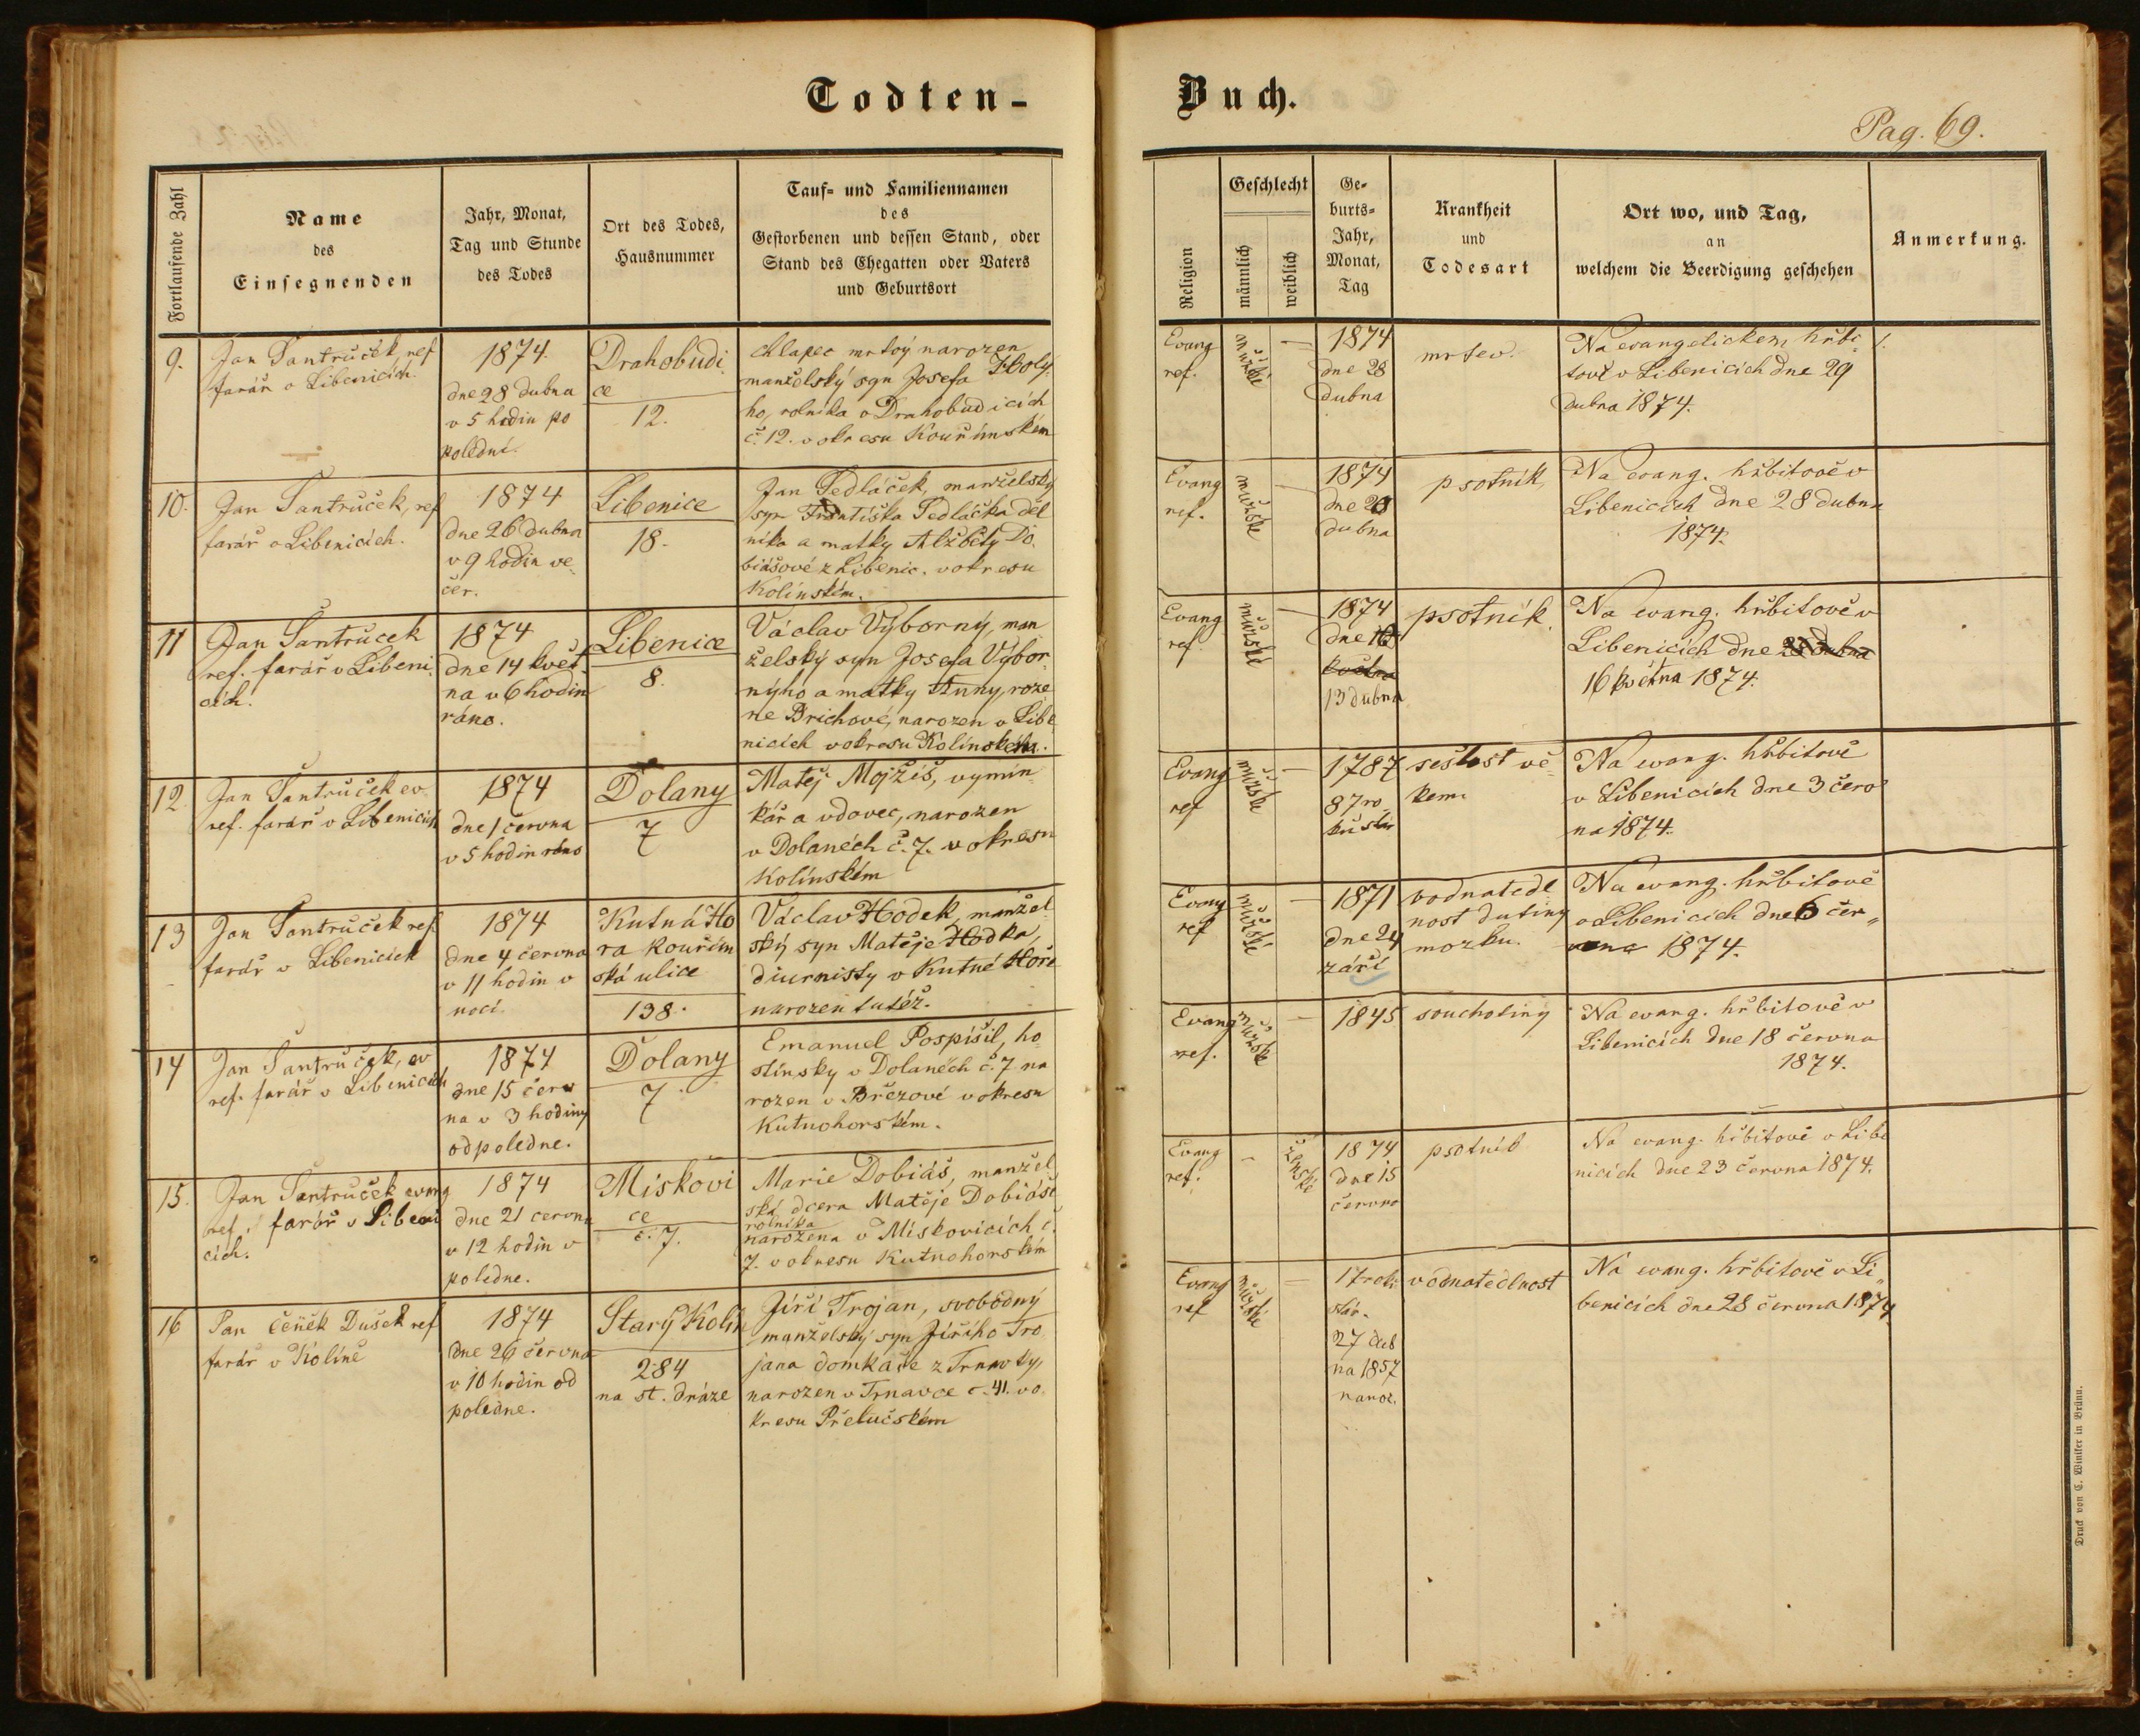 Todten-
Buch.
Pag. 69.
Fortlaufende Zahl
Name
des
Einsegnenden
Jahr, Monat,
Tag und Stunde
des Todes
Ort des Todes,
Hausnummer
Tauf- und Familiennamen
des
Gestorbenen und dessen Stand, oder
Stand des Ehegatten oder Vaters
und Geburtsort
Religion
Geschlecht
männlich
weiblich
Ge-
burts-
Jahr,
Monat,
Tag
Krankheit
und
Todesart
Ort wo, und Tag,
an
welchem die Beerdigung geschehen
Anmerkung.
9.
Jan Šantrůček, ref
farář v Libenicích.
1874.
dne 28 dubna
v 5 hodin po
polední.
Drahobudi
ce
12.
chlapec mrtvý narozen
manželský syn Josefa Holý-
ho, rolníka v Drahobudicích
č. 12. v okresu Kouřimském
Evang
ref.
mužské
—
1874
dne 28
dubna
mrtev.
Na evangelickém hřbi
tově v Libenicích dne 29
dubna 1874.
1.
10.
Jan Šantrůček, ref
farář v Libenicích.
1874
dne 26 dubna
v 9 hodin ve
čer.
Libenice
18.
Jan Sedláček, manželský
syn Františka Sedláčka děl
níka a matky Alžběty Do
biášové z Libenic. v okresu
Kolínském.
Evang
ref.
mužské
—
1874
dne
dubna
psotník
Na evang. hřbitově v
Libenicích dne 28 dubna
1874.
11
Jan Šantrůček
ref. farář v Libeni
cích.
1874
dne 14 květ
na v 6 hodin
ráno.
Libenice
8.
Václav Výborný, man
želský syn Josefa Výbor
nýho a matky Anny, roze
né Brichové, narozen v Libe
nicích v okresu Kolínském.
Evang
ref.
mužské
—
1874
dne
května
13 dubna
psotník.
Na evang. hřbitově v
Libenicích dne 28 dubna
16 května 1874.
12.
Jan Šantrůček ev.
ref. farář v Libenicích
1874
dne 1 června
v 5 hodin ráno
Dolany
7
Matěj Mojžiš, vymín
kář a vdovec, narozen
v Dolanech č. 7. v okresu
Kolínském
Evang
ref
mužské
—
1787
87 ro
ků stár
sešlost vě
kem.
Na evang. hřbitově
v Libenicích dne 3 červ
na 1874.
13
Jan Šantrůček ref.
farář v Libenicích
1874
dne 4 června
v 11 hodin v
noci.
Kutná Ho
ra kouřim
ská ulice
138.
Václav Hodek, manžel
ský syn Matěje Hodka,
diurnisty v Kutné Hoře
narozen tutéž.
Evang
ref
mužské
—
1871
dne 24
září
vodnatedl
nost dutiny
mozku.
Na evang. hřbitově
v Libenicích dne 6 čer„
vna 1874.
14
Jan Šantrůček, ev
ref. farář v Libenicích
1874
dne 15 červ
na v 3 hodiny
odpoledne.
Dolany
7
Emanuel Pospíšil, ho
stínsky v Dolanech č. 7 na
rozen v Březové v okresu
Kutnohorském.
Evang
ref.
mužské
—
1845
souchotiny
Na evang. hřbitově v
Libenicích dne 18 června
1874.
15.
Jan Šantrůček evang
ref. farář v Libeni
cích.
1874
dne 21 června
v 12 hodin v
poledne.
Miskovi
ce
č. 7.
Marie Dobiáš, manžel
ská dcera Matěje Dobiáše
rolníka
narozena v Miskovicích č.
7. v okresu Kutnohorském
Evang
ref.
—
ženské
1874
dne 15
června
psotník
Na evang. hřbitově v Libe
nicích dne 23 června 1874.
16
Pan Čeněk Dušek ref
farář v Kolíně
1874
dne 26 června
v 10 hodin od
poledne.
Starý Kolín
284
na st. dráze
Jiří Trojan, svobodný
manželský syn Jiřího Tro
jana domkáře z Trnavky,
narozen v Trnavce č. 41. v o
kresu Přeloučském
Evang
ref
mužské
—
17 roků
stár.
27 dub
na 1857
naroz.
vodnatedlnost
Na evang. hřbitově v Li„
benicích dne 28 června 1874
Druck von C. Winiker in Brünn.